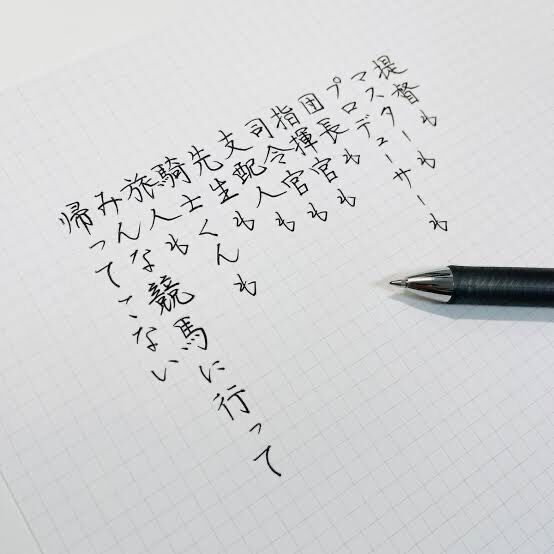 提督も
マスターも
プロデューサーも
団長も
指揮官も
司令官も
支配人も
先生も
騎士くんも
旅人も
みんな競馬に行って
帰ってこない